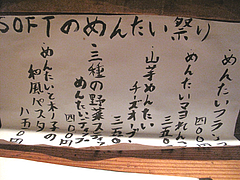 SOFTのめんたい祭り
・めんたいフラン
四〇〇
・めんたいマヨ
四〇〇
・山芋めんたい
チーズオーブン
三五〇
・三種の野菜スティック
めんたいディップ
三五〇
・めんたいとキノコの
和風パスタ
八五〇